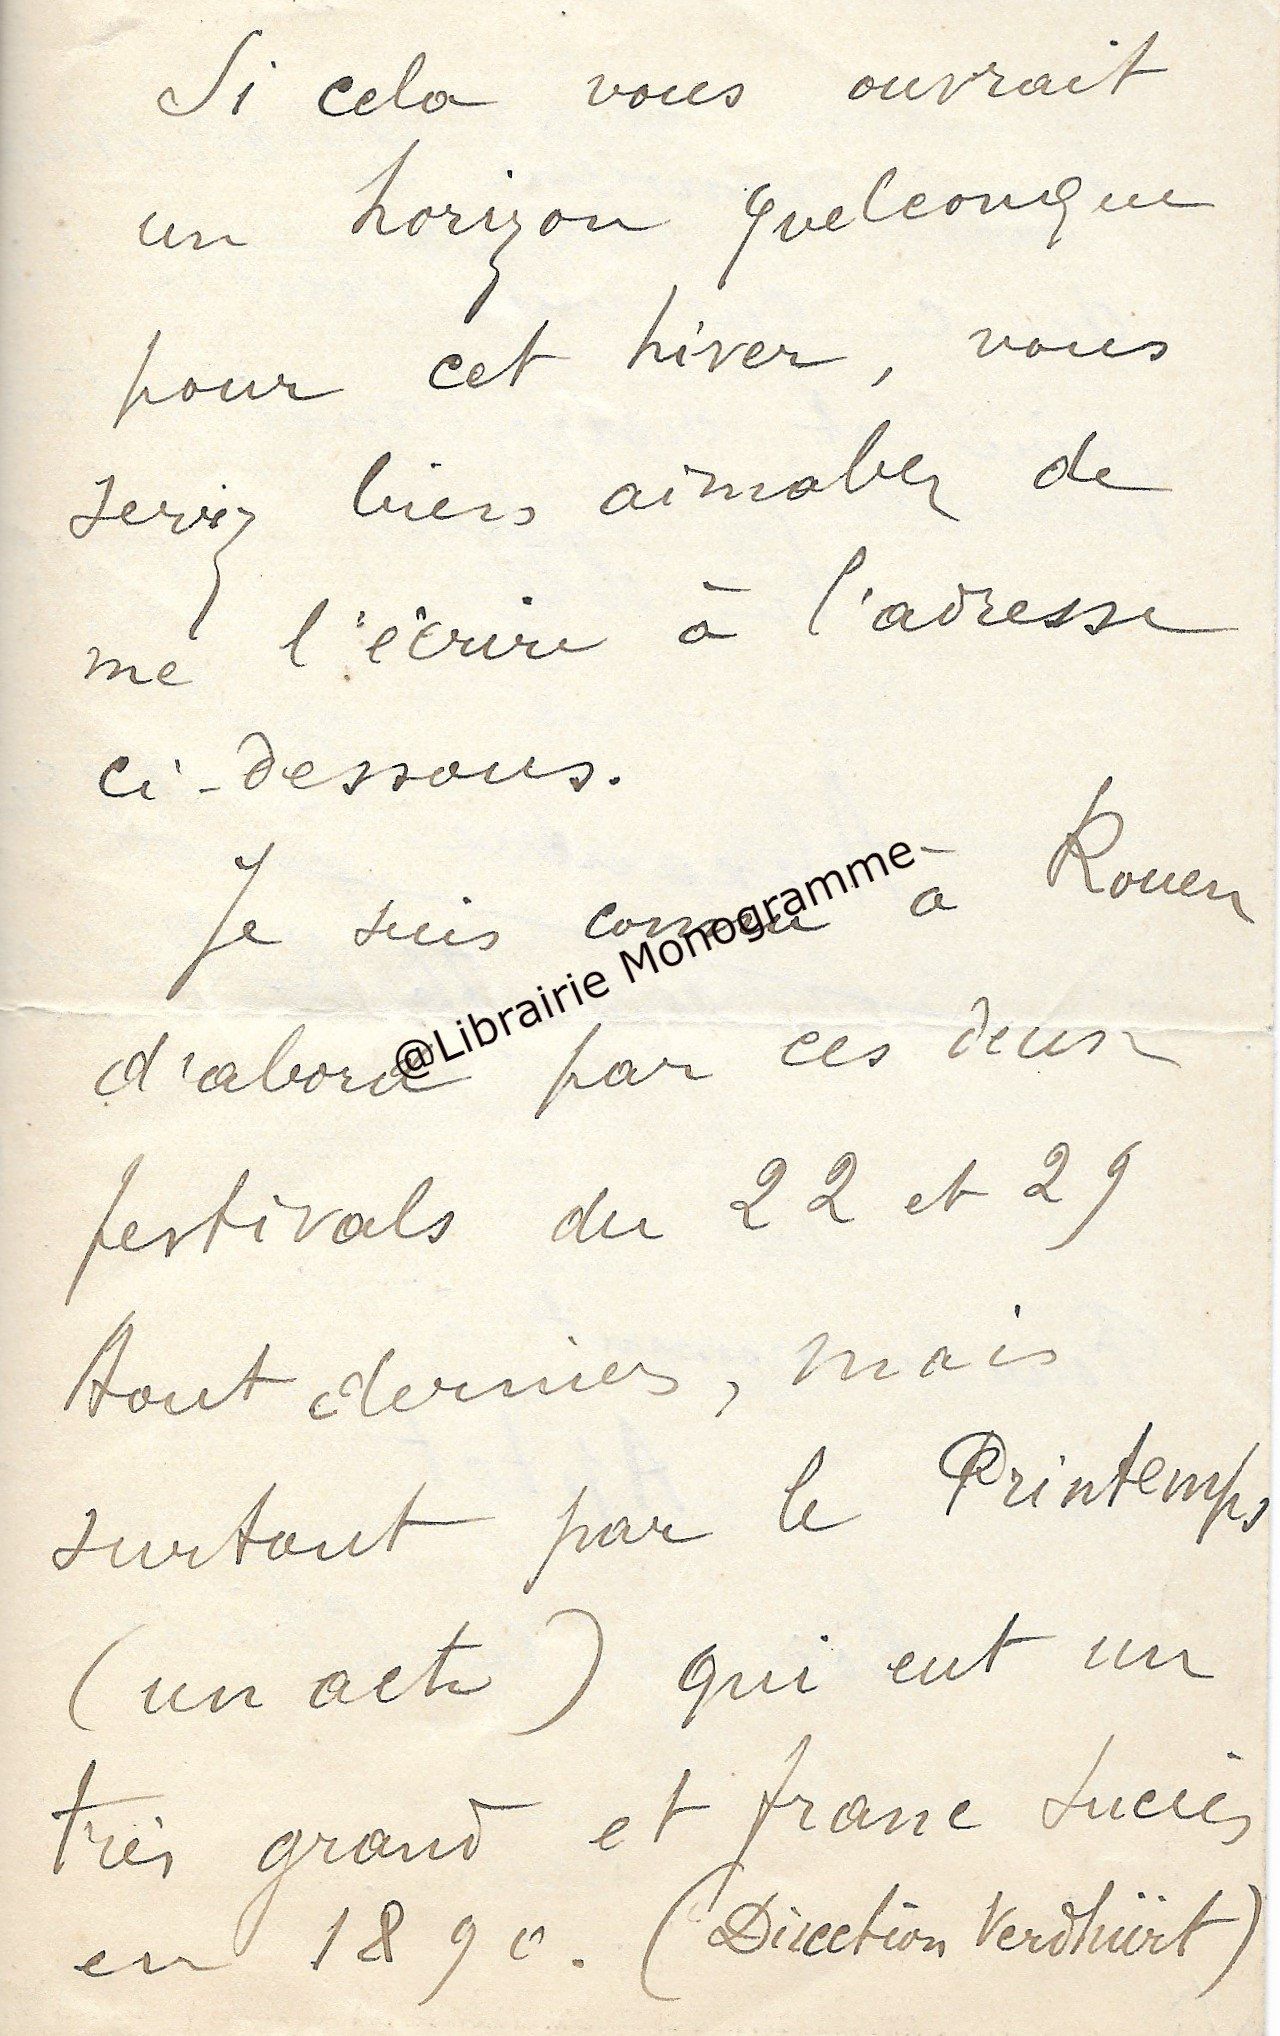 Si cela vous ouvrait
un horizon quelconque
pour cet hiver, vous
seriez bien aimable de
me l'écrire à l'adresse
ci-dessous.
Je suis connu à Rouen
@Librairie Monogramme
d'abord par ces deux
festivals du 22 et 29
Aout dernier, mais
surtout par le Printemps
(un acte) qui eut un
très grand et franc succès
en 1890. (Direction Verdhürt)